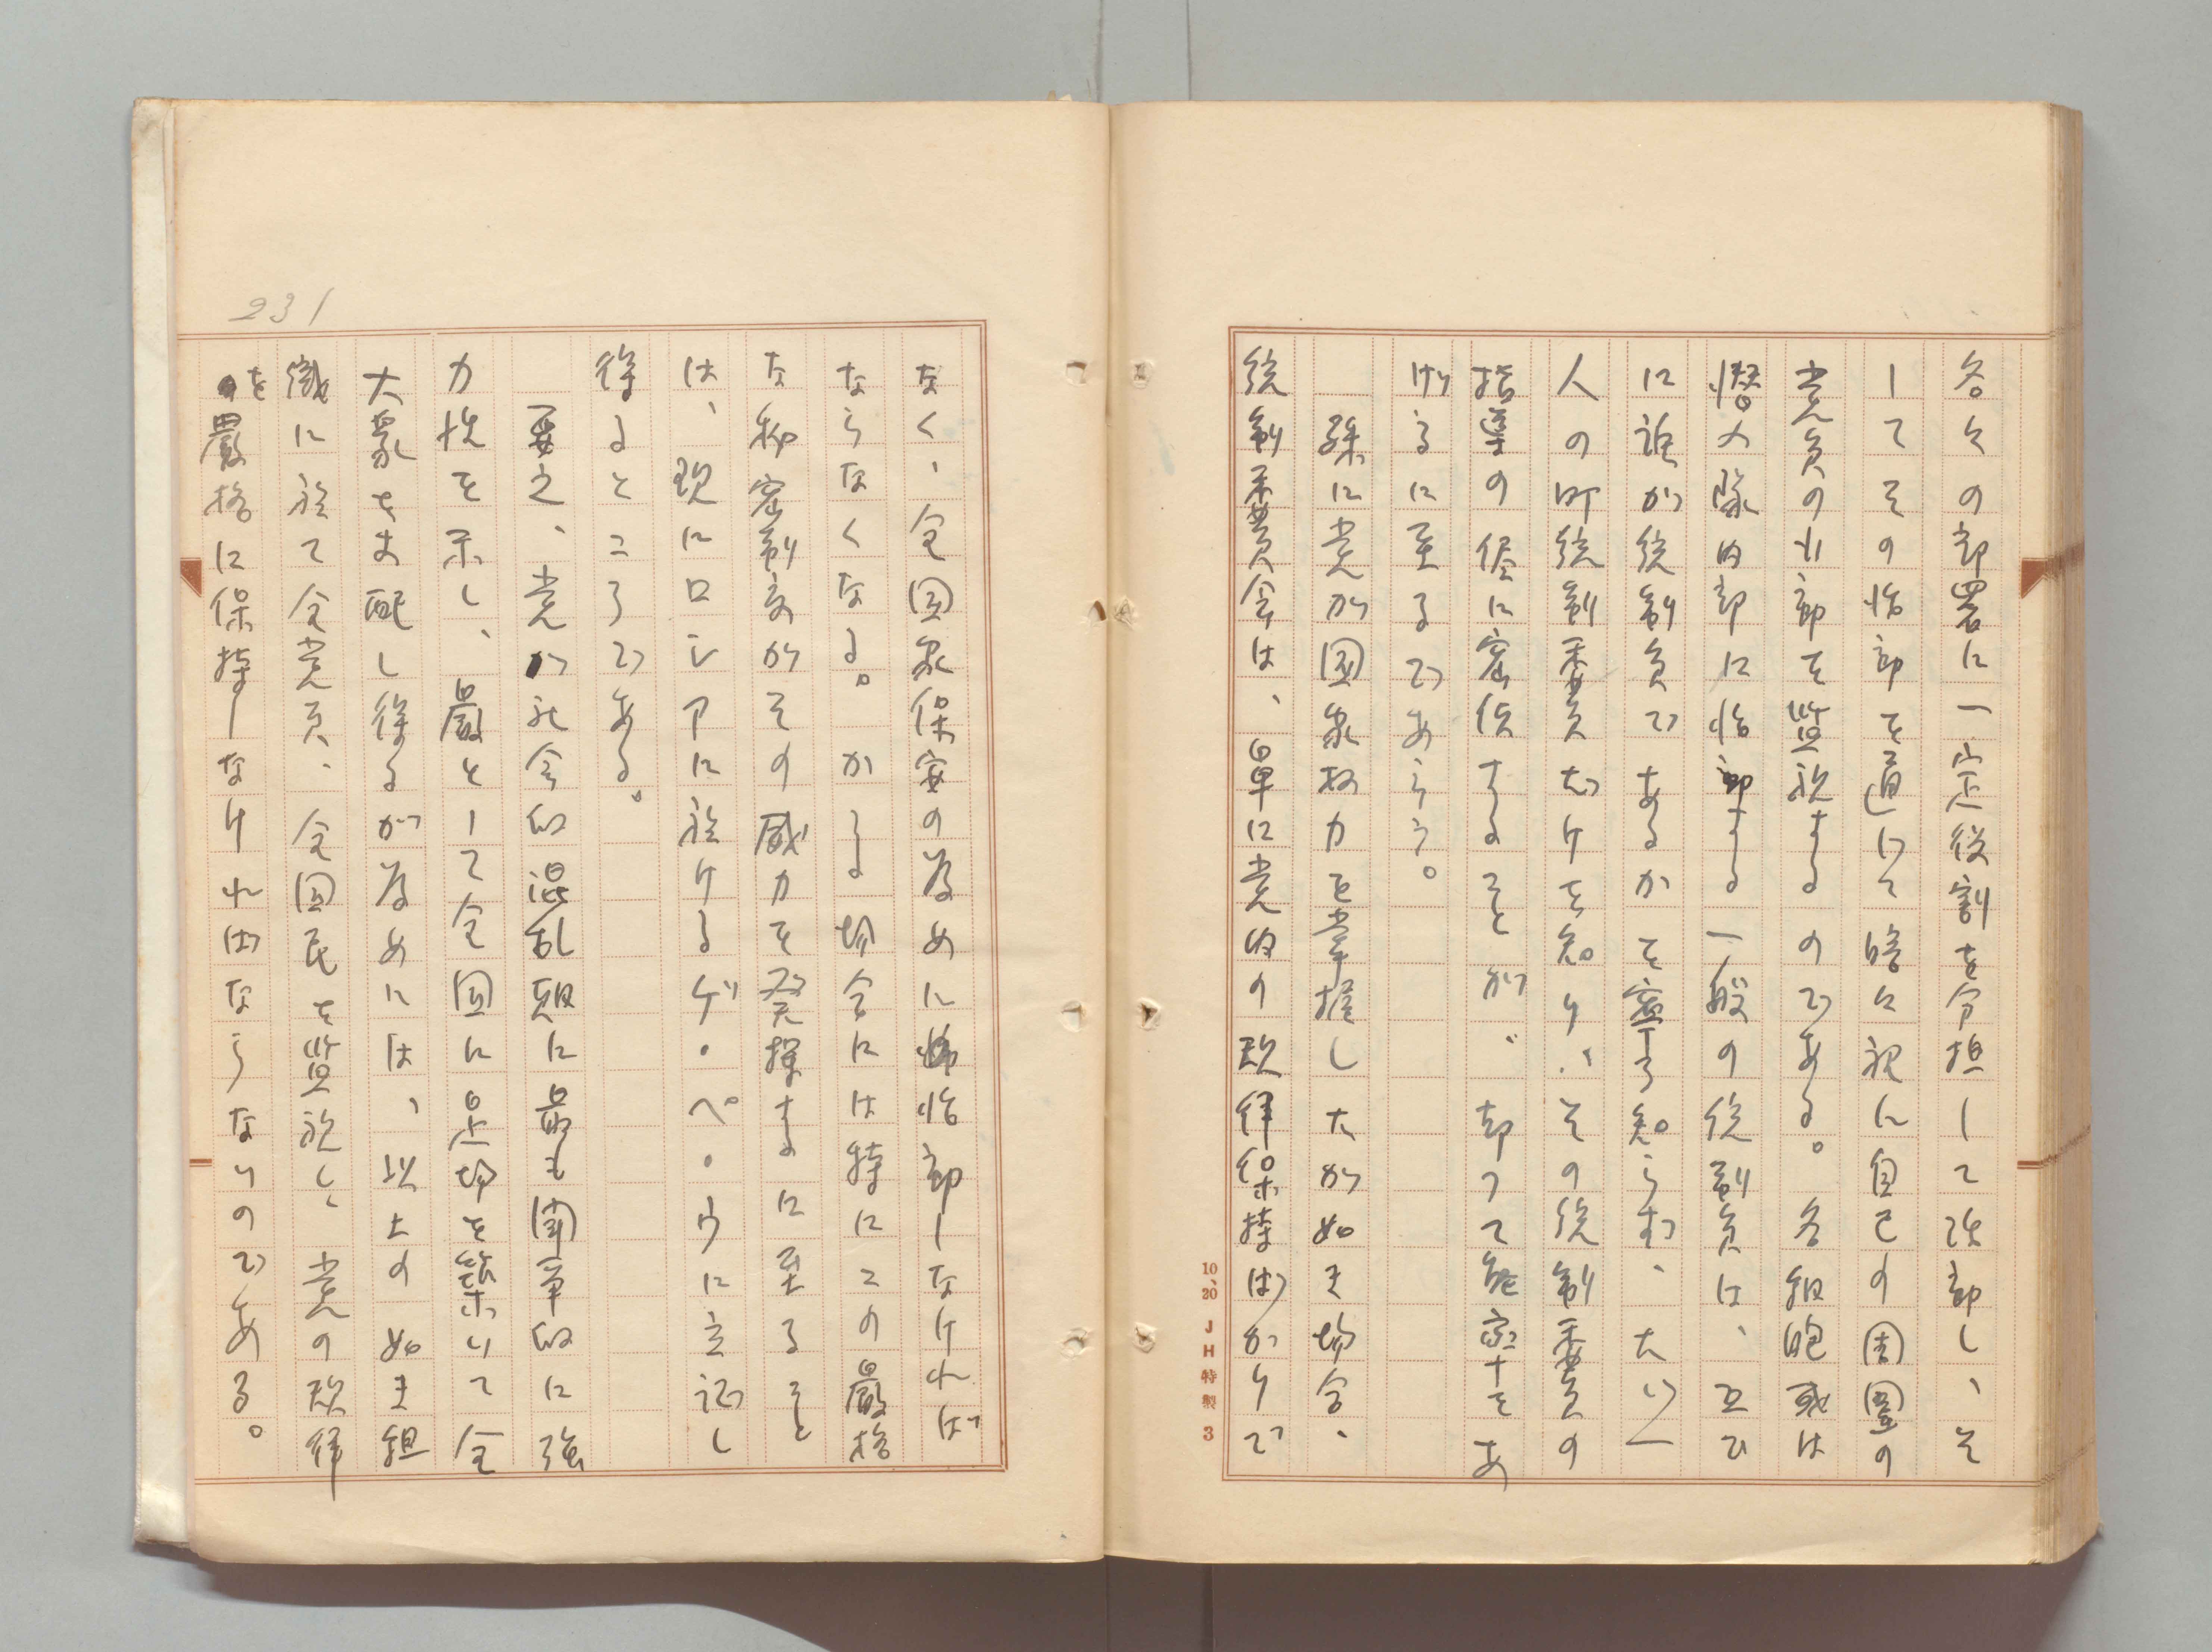 各々の部署に一定役割を分担して活動し、そ
してその活動を通じて暗々裡に自己の周囲の
党員の行動を監視するのである。各細胞或は
潜入隊内部に活動する一般の統制員は、互ひ
に誰が統制員であるかを寧ろ知らず、たゞ一
人の所統制委員だけを知り、その統制委員の
指導の侭に密偵することが、却つて能率をあ
げるに至るであらう。
殊に党が国家权力を掌握したが如き場合、
統制委員会は、単に党内の規律保持ばかりで
10、20 JH特製 3
231
なく、全国家保安の為めに活動しなければ
ならなくなる。かゝる場合には特にこの厳格
な秘密制度がその威力を発揮するに至ること
は、現にロシアに於けるゲ・ペ・ウに立証し
得るところである。
要之、党が社会的混乱期に最も闘争的に強
力性を示し、厳として全国に足場を築いて全
大衆を支配し得るが為めには、以上の如き組
織に於て全党員、全国民を監視し、党の規律
を厳格に保持しなければならないのである。